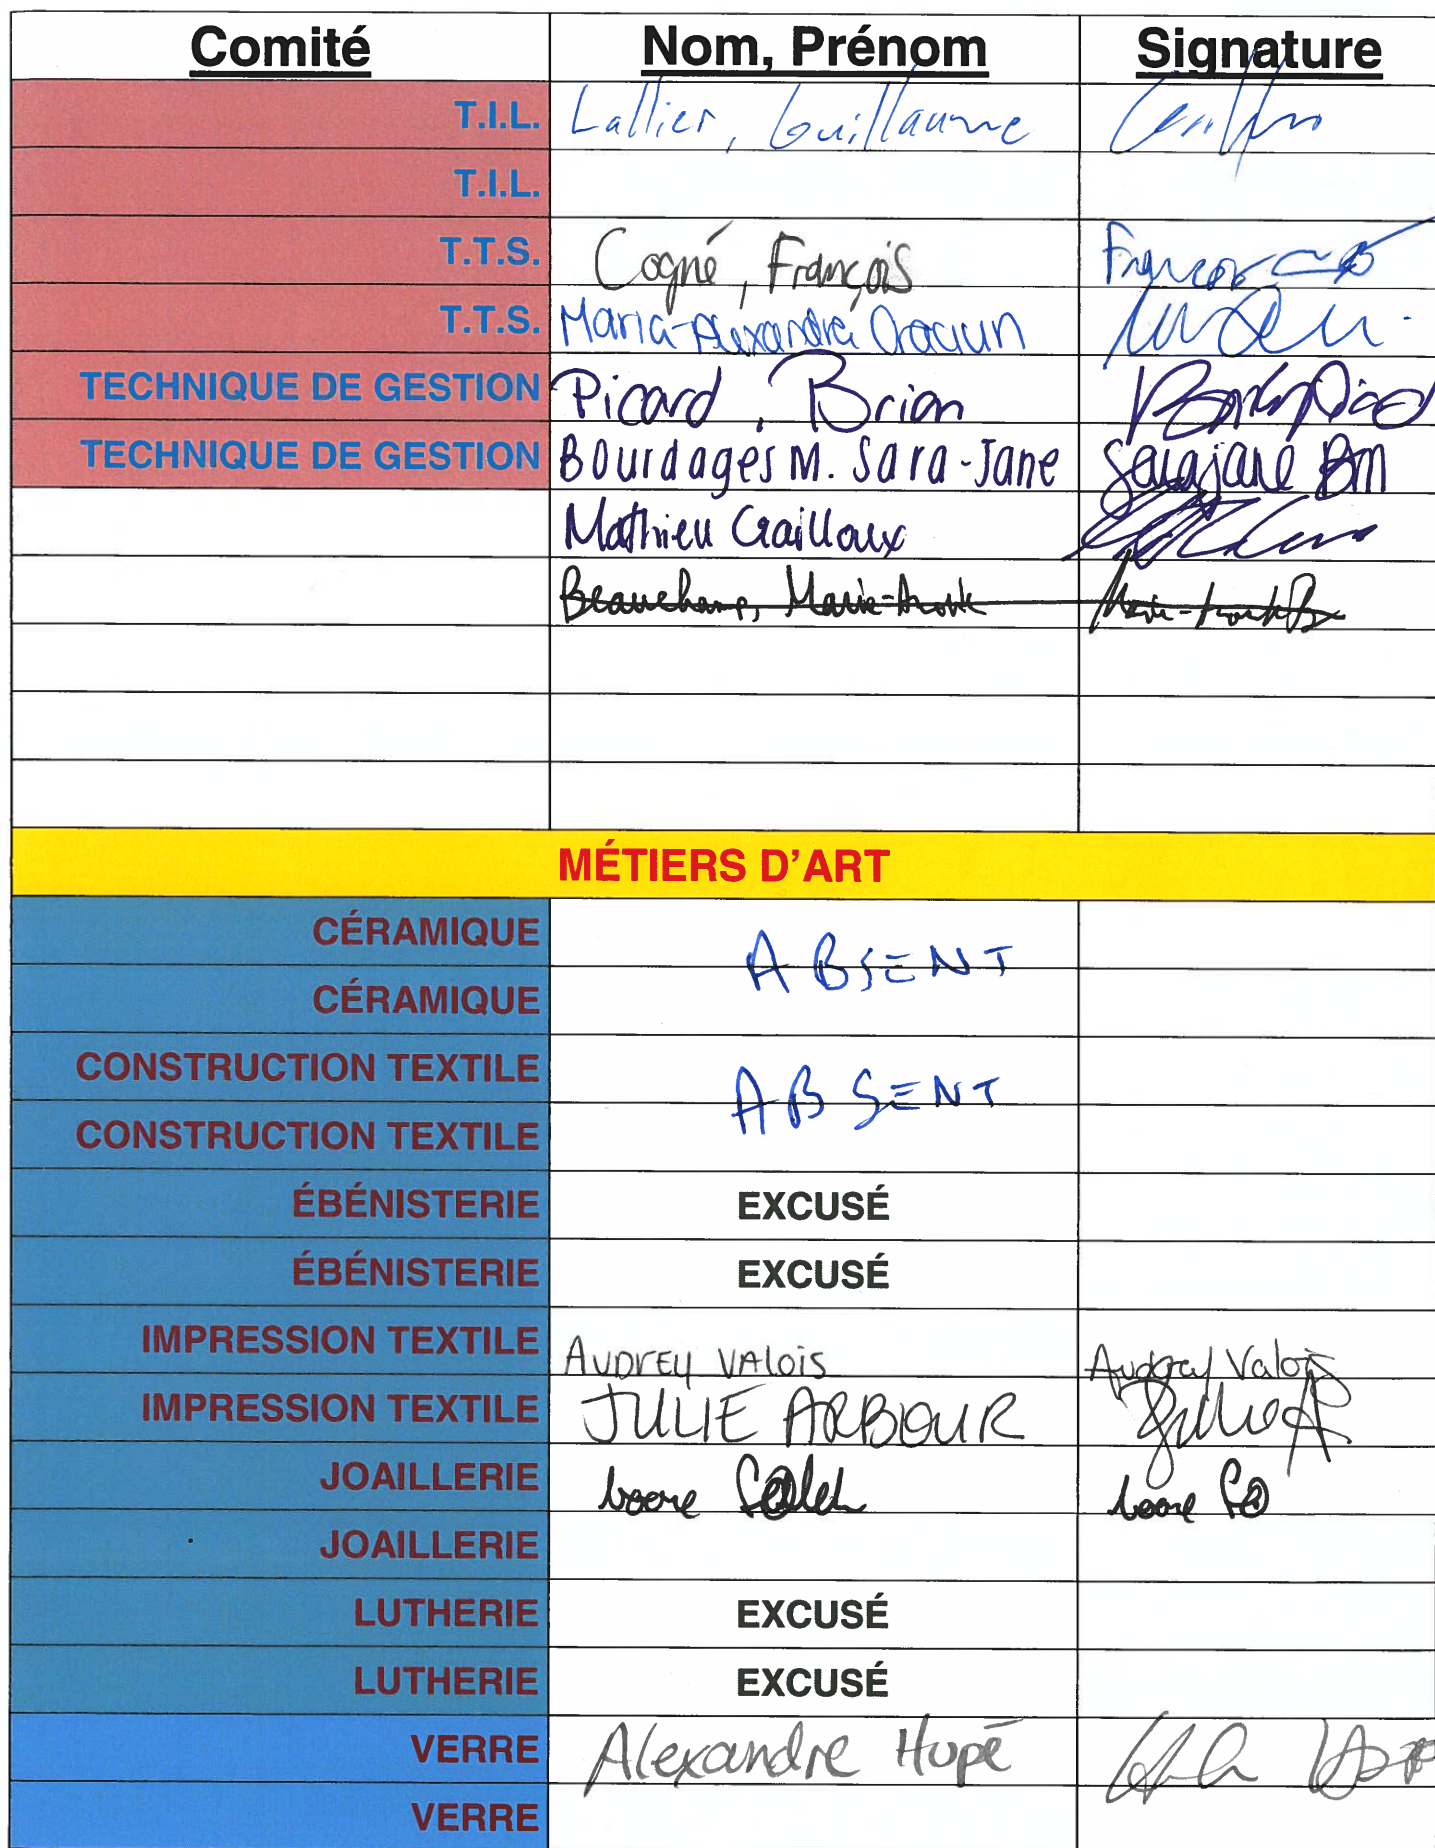 Comité Nom, Prénom Signature
T.I.L. Lallier, Guillaume
T.I.L.
T.T.S. Cogné, François
T.T.S. Maria-Alexandra Craciun
TECHNIQUE DE GESTION Picard, Brian
TECHNIQUE DE GESTION Bourdages M. Sara-Jane Sarajane BM
Mathieu Crailloux
Beauchamp, Marie-Anouk
MÉTIERS D'ART
CÉRAMIQUE
ABSENT
CÉRAMIQUE
CONSTRUCTION TEXTILE
ABSENT
CONSTRUCTION TEXTILE
ÉBÉNISTERIE EXCUSÉ
ÉBÉNISTERIE EXCUSÉ
IMPRESSION TEXTILE AUDREY VALOIS Audrey Valois
IMPRESSION TEXTILE JULIE ARBOUR Julie A
JOAILLERIE
JOAILLERIE
LUTHERIE EXCUSÉ
LUTHERIE EXCUSÉ
VERRE Alexandre Hupé
VERRE